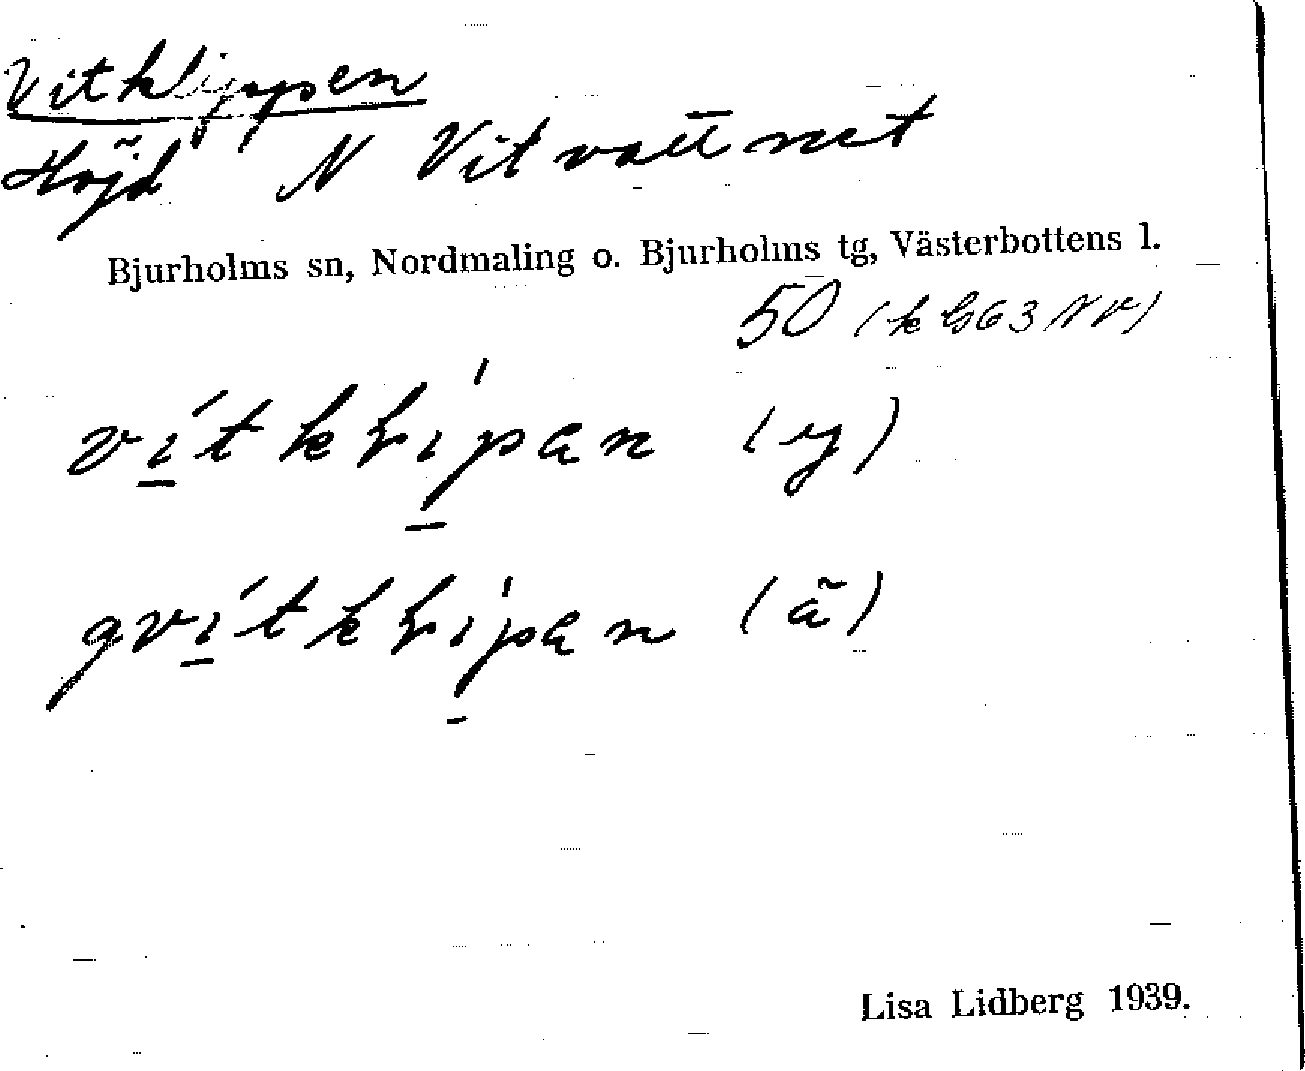 Vitklippen
Höjd N Vitvattnet
Bjurholms sn, Nordmaling o. Bjurholms tg, Västerbottens l.
50 (k G63 NV)
vı̲́tkḷı̲̍pan (y)
gvı̲́tkḷı̲̍pan (ä)
Lisa Lidberg 1939.